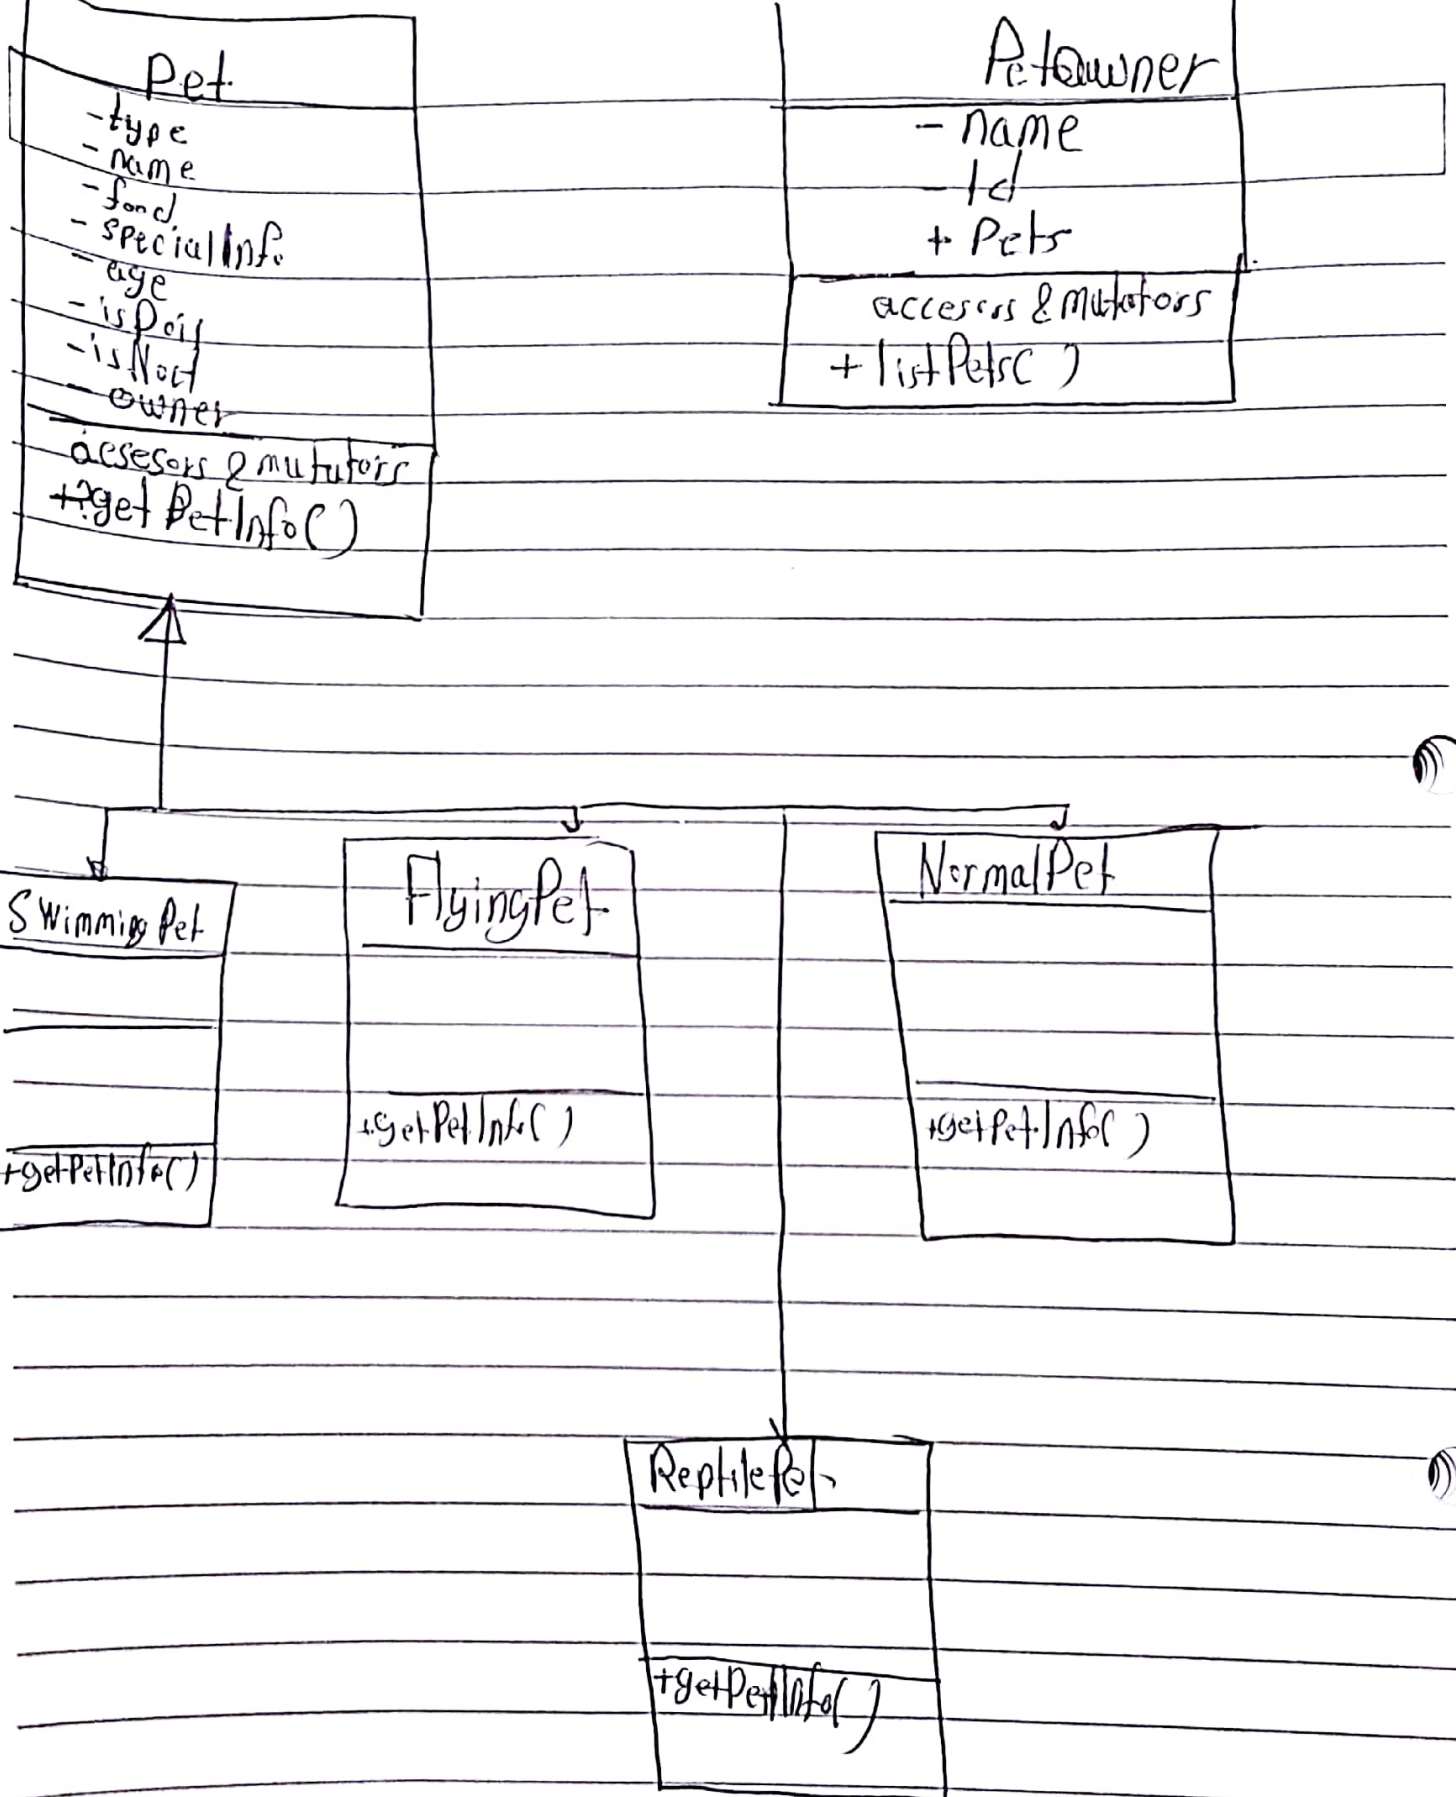 Pet
- type
- name
- food
- specialInfo
- age
- isDai
- isNoct
- owner
acsesors & mututors
+ getPetInfo()
PetOwner
- name
- Id
+ Pets
accesors & mutators
+ listPets()
SwimmingPet
+getPetInfo()
FlyingPet
+getPetInfo()
NormalPet
+getPetInfo()
ReptilePet
+getPetInfo()